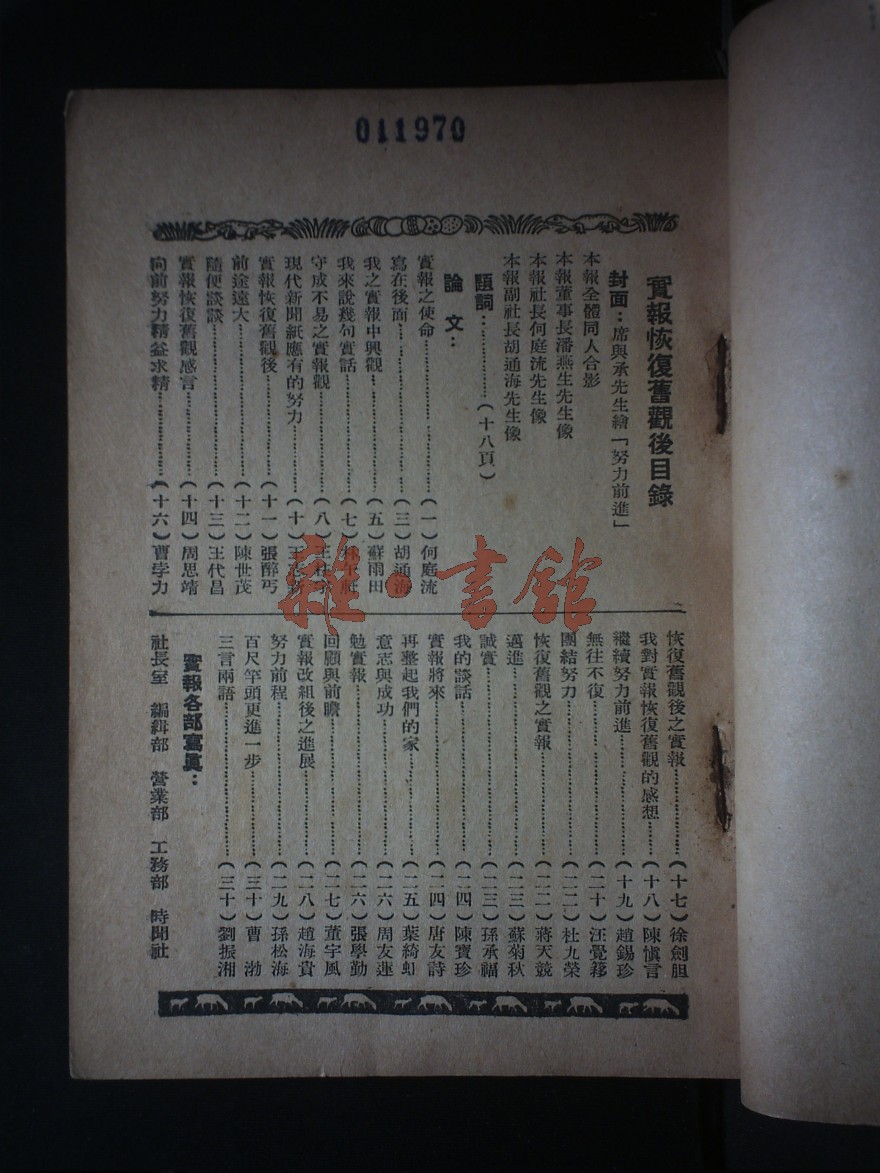 011970
實報恢復舊觀後目錄
封面：席與承先生繪「努力前進」
本報全體同人合影
本報董事長潘燕生先生像
本報社長何庭流先生像
本報副社長胡通海先生像
題詞：…………（十八頁）
論文：
實報之使命…………（一）何庭流
寫在後面…………（三）胡通海
我之實報中興觀…………（五）蘇雨田
我來說幾句實話…………（七）林午
守成不易之實報觀…………（八）王柱
現代新聞紙應有的努力…………（十）王
實報恢復舊觀後…………（十一）張醉丐
前途遠大…………（十二）陳世茂
隨便談談…………（十三）王代昌
實報恢復舊觀感言…………（十四）周思靖
向前努力精益求精…………（十六）曹孛力
恢復舊觀後之實報…………（十七）徐劍胆
我對實報恢復舊觀的感想…………（十八）陳愼言
繼續努力前進…………（十九）趙錫珍
無往不復…………（二十）汪覺簃
團結努力…………（二二）杜九榮
恢復舊觀之實報…………（二二）蔣天競
邁進…………（二三）蘇菊秋
誠實…………（二三）孫承福
我的談話…………（二四）陳寶珍
實報將來…………（二四）唐友詩
再整起我們的家…………（二五）葉綺虹
意志與成功…………（二六）周友蓮
勉實報…………（二六）張學勤
回顧與前瞻…………（二七）董宇風
實報改組後之進展…………（二八）趙海貴
努力前程…………（二九）孫松海
百尺竿頭更進一步…………（三十）曹渤
三言兩語…………（三十）劉振湘
實報各部寫眞：
社長室 編緝部 營業部 工務部 時聞社
雜·書館